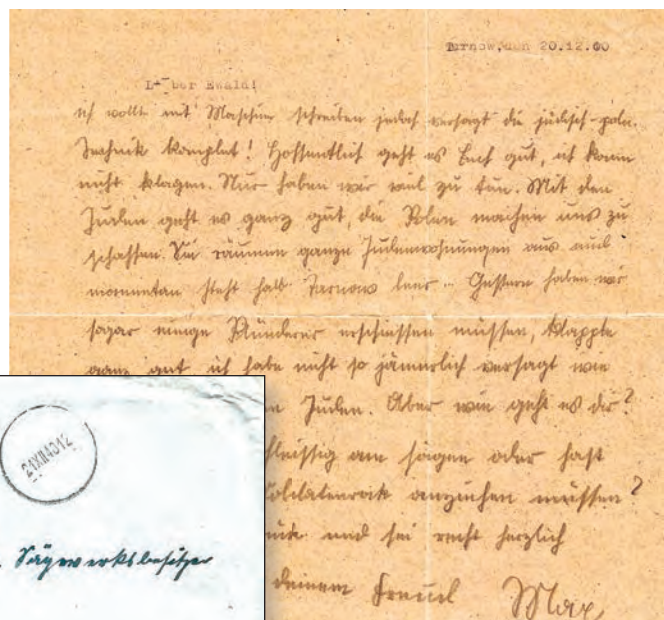 Tarnow, den 20.12.60
Lieber Ewald!
ich wollt mit Maschine schreiben jedoch versagt die jüdisch-poln.
Technik komplet! Hoffentlich geht es Euch gut, ich kann
nicht klagen. Nur haben wir viel zu tun. Mit den
Juden geht es ganz gut, die Polen machen uns zu
schaffen. Sie räumen ganze Judenwohnungen aus und
momentan steht halb Tarnow leer - Gestern haben wir
sogar einige Plünderer erschiessen müssen, klappte
ganz gut ich habe nicht so jämmerlich versagt wie
Juden. Aber wie geht es dir?
fleissig am sägen oder hast
Soldatenrock anzuziehen müssen?
und sei recht herzlich
deinem Freund Max
Sägewerksbesitzer